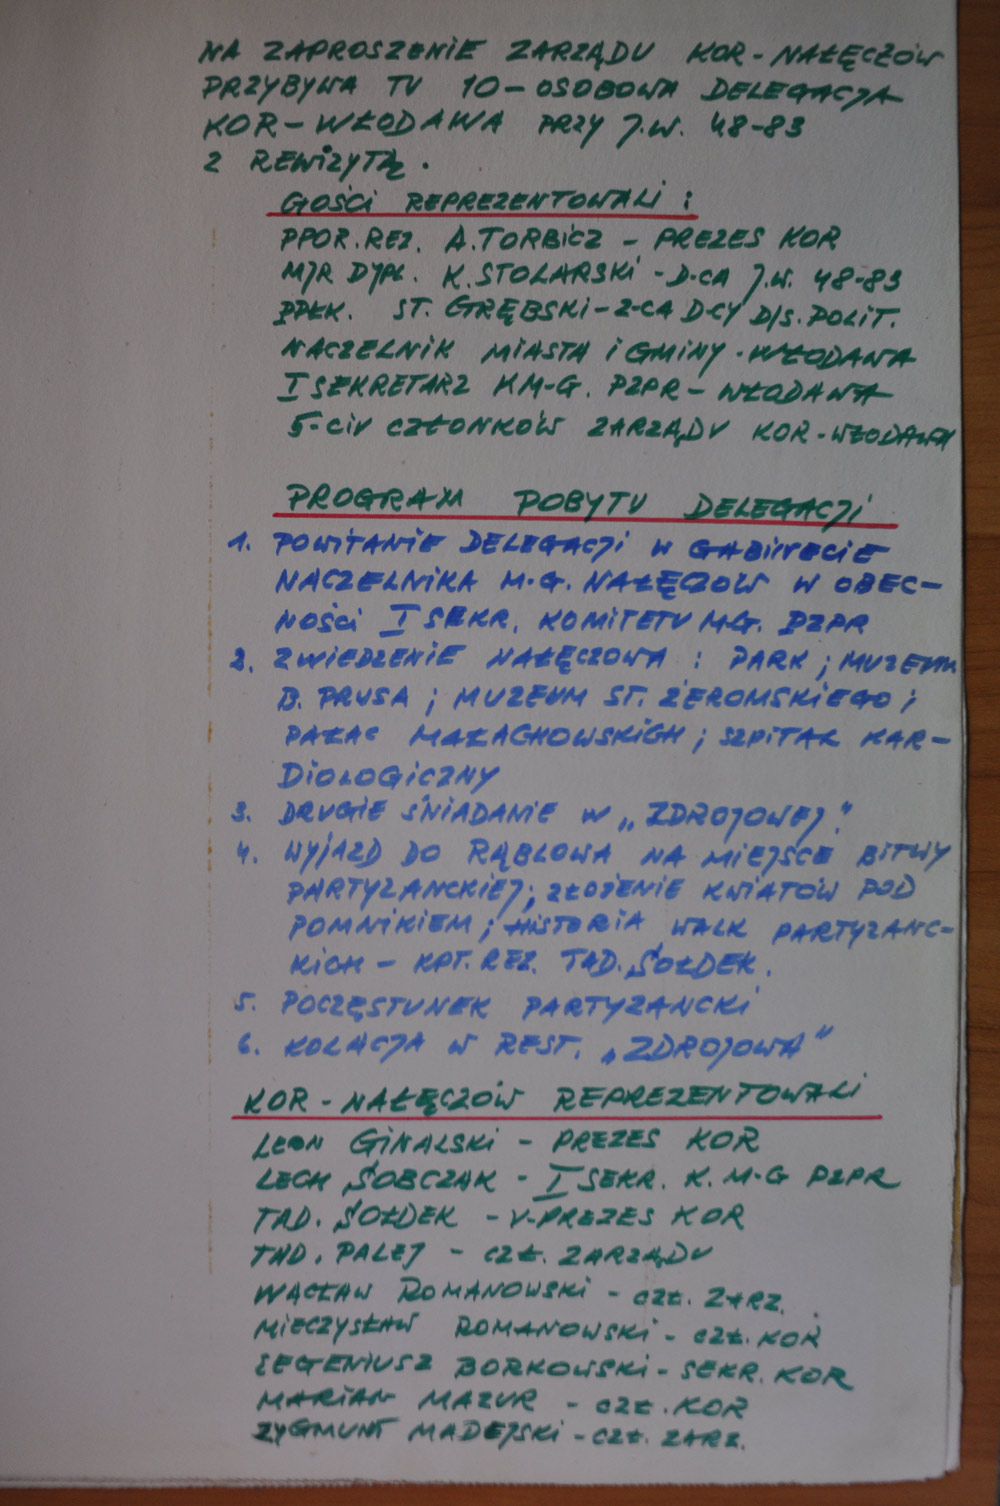 NA ZAPROSZENIE ZARZĄDU KOR-NAŁĘCZÓW
PRZYBYWA TU 10-OSOBOWA DELEGACJA
KOR-WŁODAWA PRZY J.W. 48-83
Z REWIZYTĄ.
GOŚCI REPREZENTOWALI:
PPOR. REZ. A. TORBICZ - PREZES KOR
MJR DYPL. K. STOLARSKI - D-CA J.W. 48-83
PPŁK. ST. GRĘBSKI - Z-CA D-CY D/S. POLIT.
NACZELNIK MIASTA i GMINY - WŁODAWA
I SEKRETARZ KM-G. PZPR - WŁODAWA
5-CIU CZŁONKÓW ZARZĄDU KOR-WŁODAWA
PROGRAM POBYTU DELEGACJI
1. POWITANIE DELEGACJI W GABINECIE
NACZELNIKA M-G. NAŁĘCZÓW W OBEC-
NOŚCI I SEKR. KOMITETU M-G. PZPR
2. ZWIEDZENIE NAŁĘCZOWA: PARK; MUZEUM
B. PRUSA; MUZEUM ST. ŻEROMSKIEGO;
PAŁAC MAŁACHOWSKICH; SZPITAL KAR-
DIOLOGICZNY
3. DRUGIE ŚNIADANIE W „ZDROJOWEJ."
4. WYJAZD DO RĄBLOWA NA MIEJSCE BITWY
PARTYZANCKIEJ; ZŁOŻENIE KWIATÓW POD
POMNIKIEM; HISTORIA WALK PARTYZANC-
KICH - KPT. REZ. TAD. SOŁDEK.
5. POCZĘSTUNEK PARTYZANCKI
6. KOLACJA W REST. „ZDROJOWA"
KOR - NAŁĘCZÓW REPREZENTOWALI
LEON GINALSKI - PREZES KOR
LECH SOBCZAK - I SEKR. K. M-G PZPR
TAD. SOŁDEK - V-PREZES KOR
TAD. PALEJ - CZŁ. ZARZĄDU
WACŁAW ROMANOWSKI - CZŁ. ZARZ.
MIECZYSŁAW ROMANOWSKI - CZŁ. KOR
EEGENIUSZ BORKOWSKI - SEKR. KOR
MARIAN MAZUR - CZŁ. KOR
ZYGMUNT MADEJSKI - CZŁ. ZARZ.